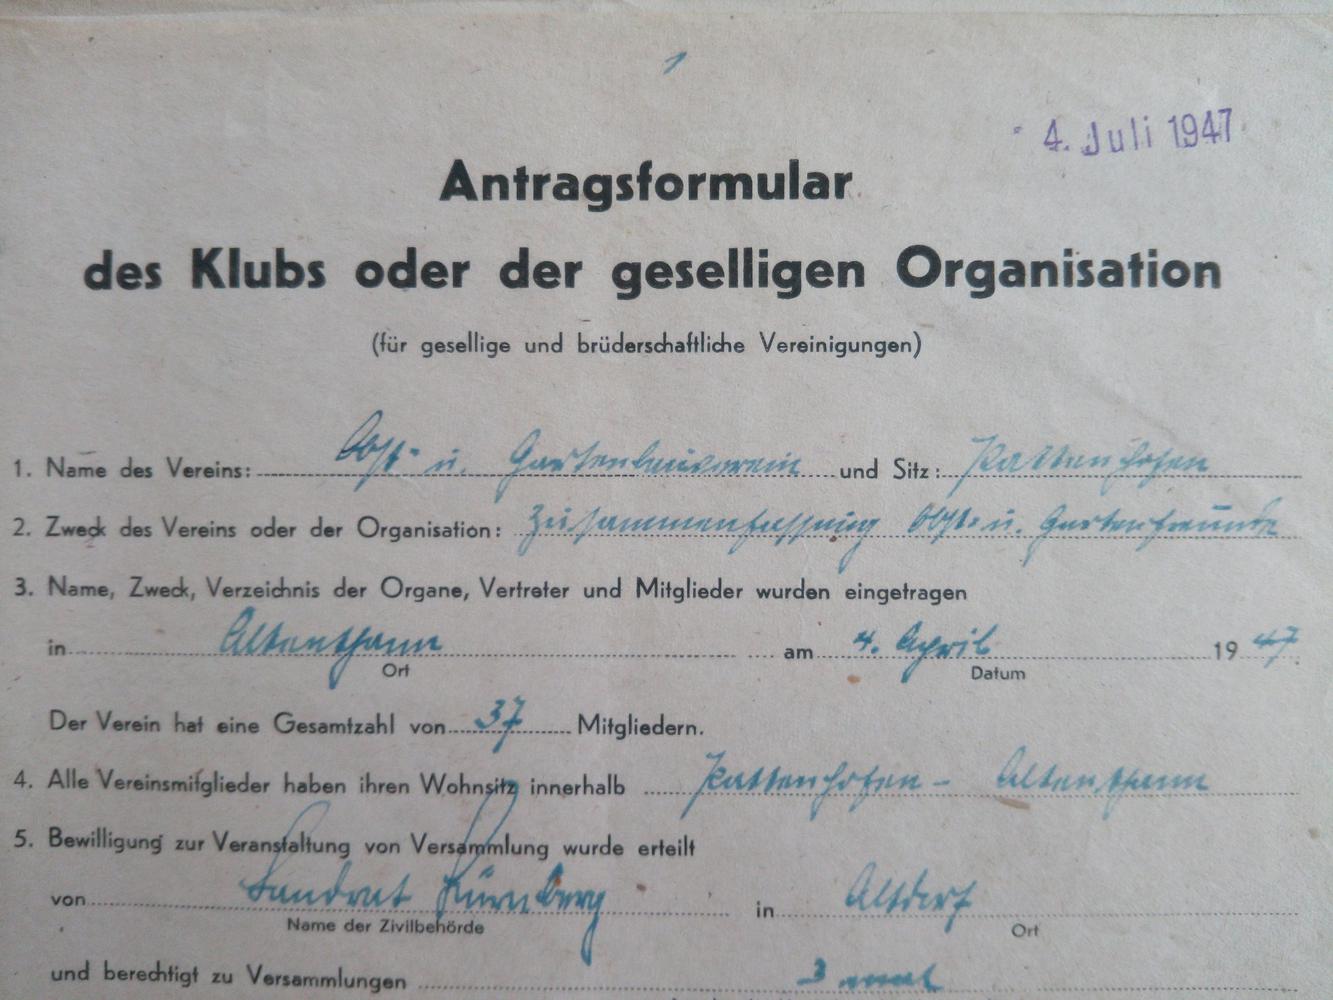 1
4. Juli 1947
Antragsformular
des Klubs oder der geselligen Organisation
(für gesellige und brüderschaftliche Vereinigungen)
1. Name des Vereins: Obst- u. Gartenbauverein und Sitz: Rattenhofen
2. Zweck des Vereins oder der Organisation: Zusammenfassung Obst- u. Gartenfreunde
3. Name, Zweck, Verzeichnis der Organe, Vertreter und Mitglieder wurden eingetragen
in Altenthann am 4. April 1947
Ort Datum
Der Verein hat eine Gesamtzahl von 37 Mitgliedern.
4. Alle Vereinsmitglieder haben ihren Wohnsitz innerhalb Rattenhofen - Altenthann
5. Bewilligung zur Veranstaltung von Versammlung wurde erteilt
von Landrat Nürnberg in Altdorf
Name der Zivilbehörde Ort
und berechtigt zu Versammlungen 3 mal